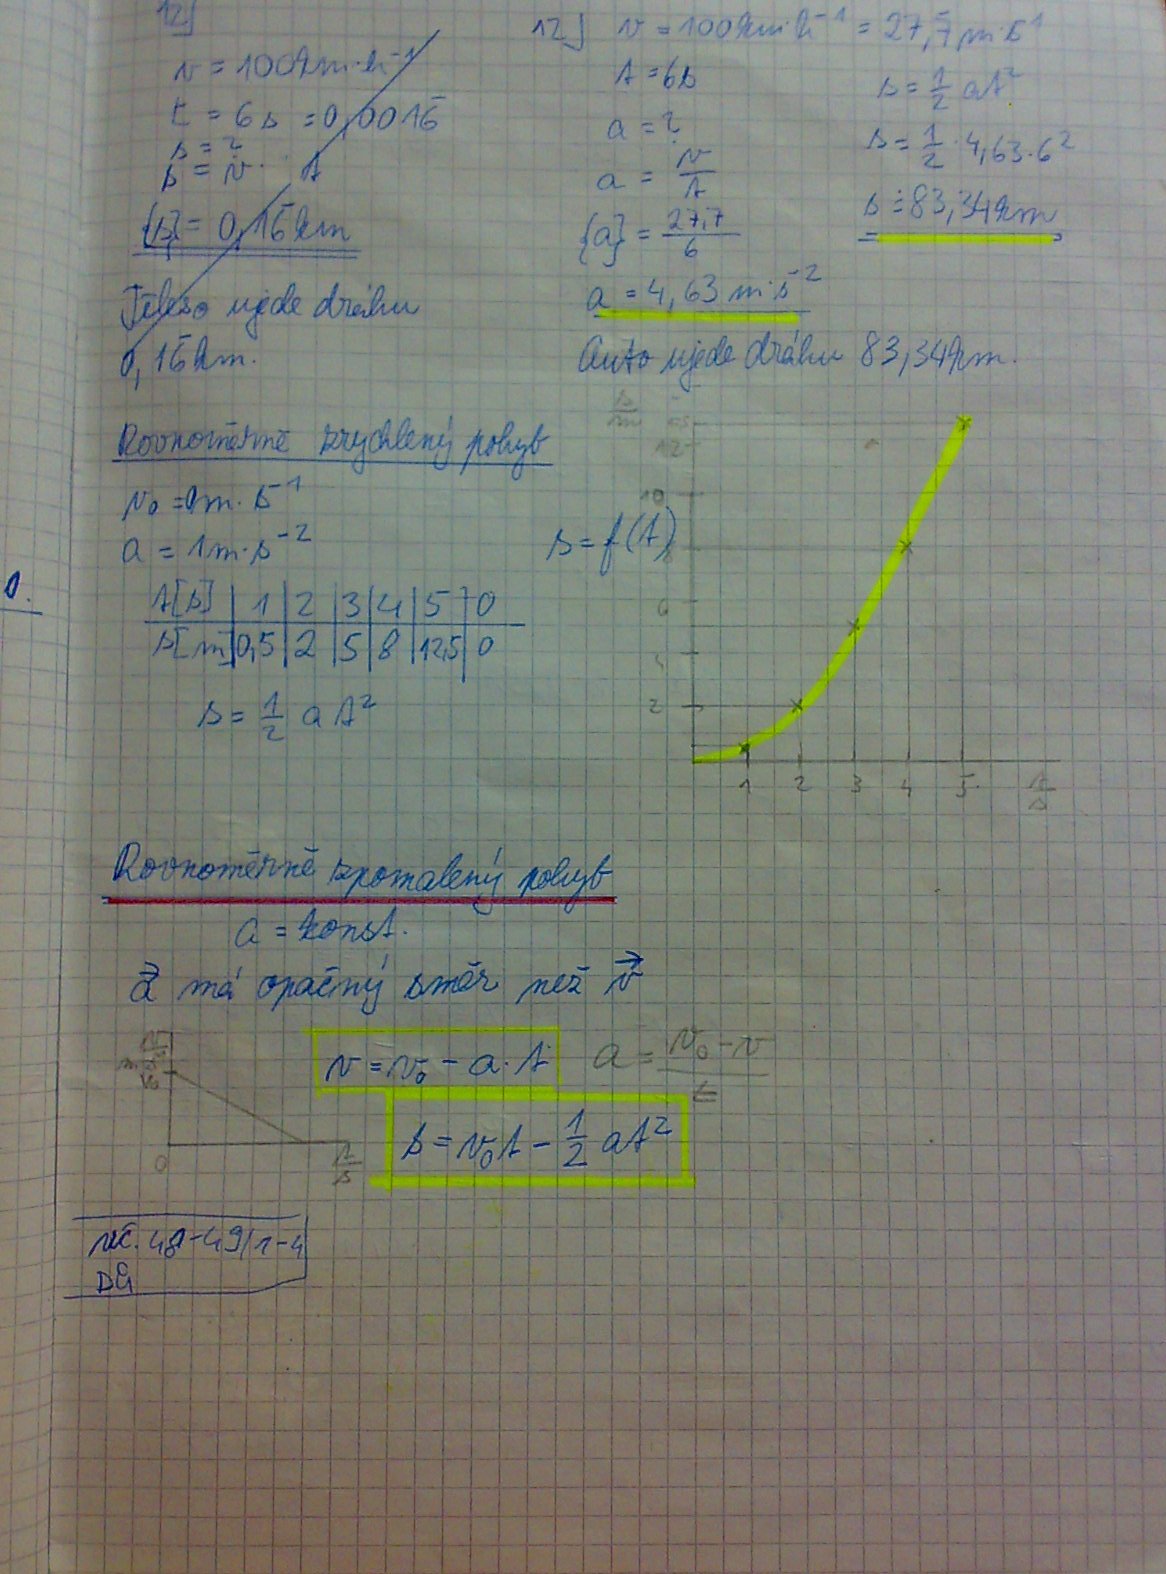 12)
v = 100km·h⁻¹
t = 6s = 0,0016̄
s = ?
s = v · t
{s} = 0,16̄km
Těleso ujede dráhu
0,16̄km.
12) v = 100km·h⁻¹ = 27,7̄ m·s⁻¹
t = 6s
a = ?
a = v/t
{a} = 27,7/6
a = 4,63 m·s⁻²
s = 1/2 at²
s = 1/2 · 4,63 · 6²
s ≐ 83,34km
Auto ujede dráhu 83,34km.
Rovnoměrně zrychlený pohyb
v₀ = 0m·s⁻¹
a = 1m·s⁻²
t[s] | 1 | 2 | 3 | 4 | 5 | 0
s[m] | 0,5 | 2 | 5 | 8 | 12,5 | 0
s = 1/2 a t²
s = f(t)
s/m
12
10
8
6
4
2
1 2 3 4 5 t/s
0.
Rovnoměrně zpomalený pohyb
a = konst.
a⃗ má opačný směr než v⃗
0
t/s
v = v₀ - a·t
a = v₀ - v / t
s = v₀t - 1/2 at²
uč. 48-49/1-4
DÚ